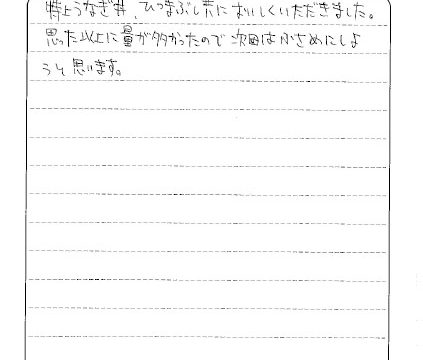 特上うなぎ丼、ひつまぶし共においしくいただきました。
思った以上に量が多かったので次回は小さめにしよ
うと思います。